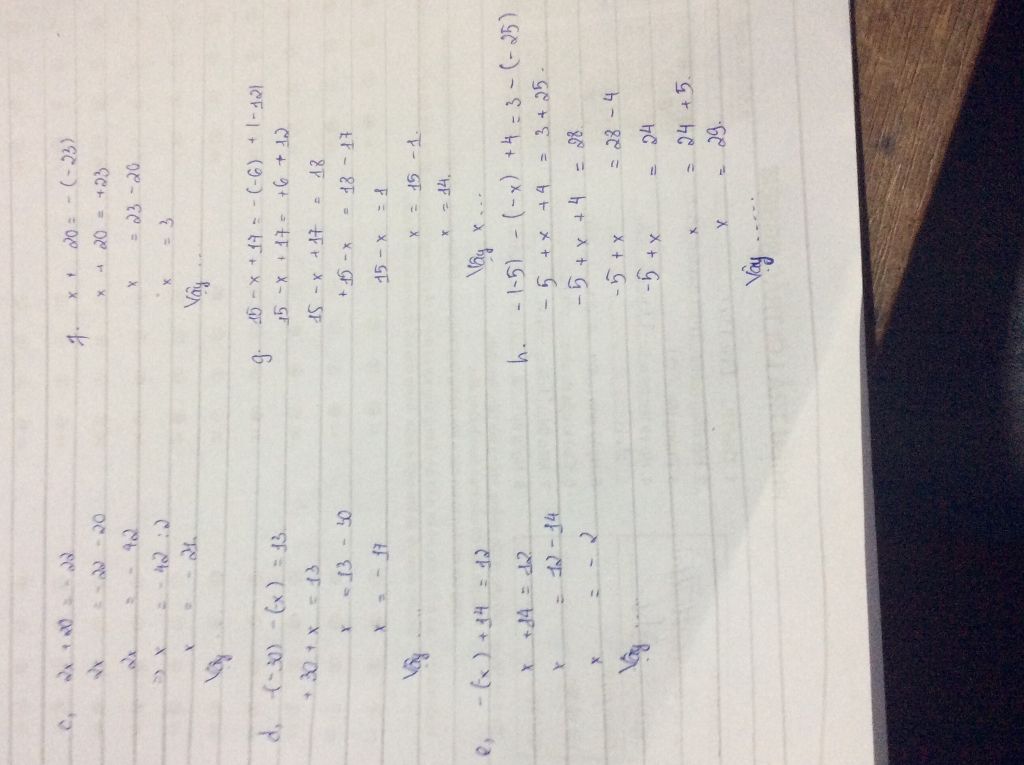 c, 2x + 20 = - 22
2x = - 22 - 20
2x = - 42
=> x = - 42 : 2
x = - 21.
Vậy ....
d, -(-30) - (-x) = 13
+ 30 + x = 13
x = 13 - 30
x = - 17
Vậy ....
e, - (-x) + 14 = 12
x + 14 = 12
x = 12 - 14
x = - 2
Vậy ....
f. x + 20 = - (-23)
x + 20 = +23
x = 23 - 20
x = 3
Vậy ...
g. 15 - x + 17 = - (-6) + |-12|
15 - x + 17 = +6 + 12
15 - x + 17 = 18
+ 15 - x = 18 - 17
15 - x = 1
x = 15 - 1.
x = 14.
Vậy x ...
h. - |-5| - (-x) + 4 = 3 - (-25)
- 5 + x + 4 = 3 + 25.
- 5 + x + 4 = 28
-5 + x = 28 - 4
-5 + x = 24
x = 24 + 5.
x = 29.
Vậy .....